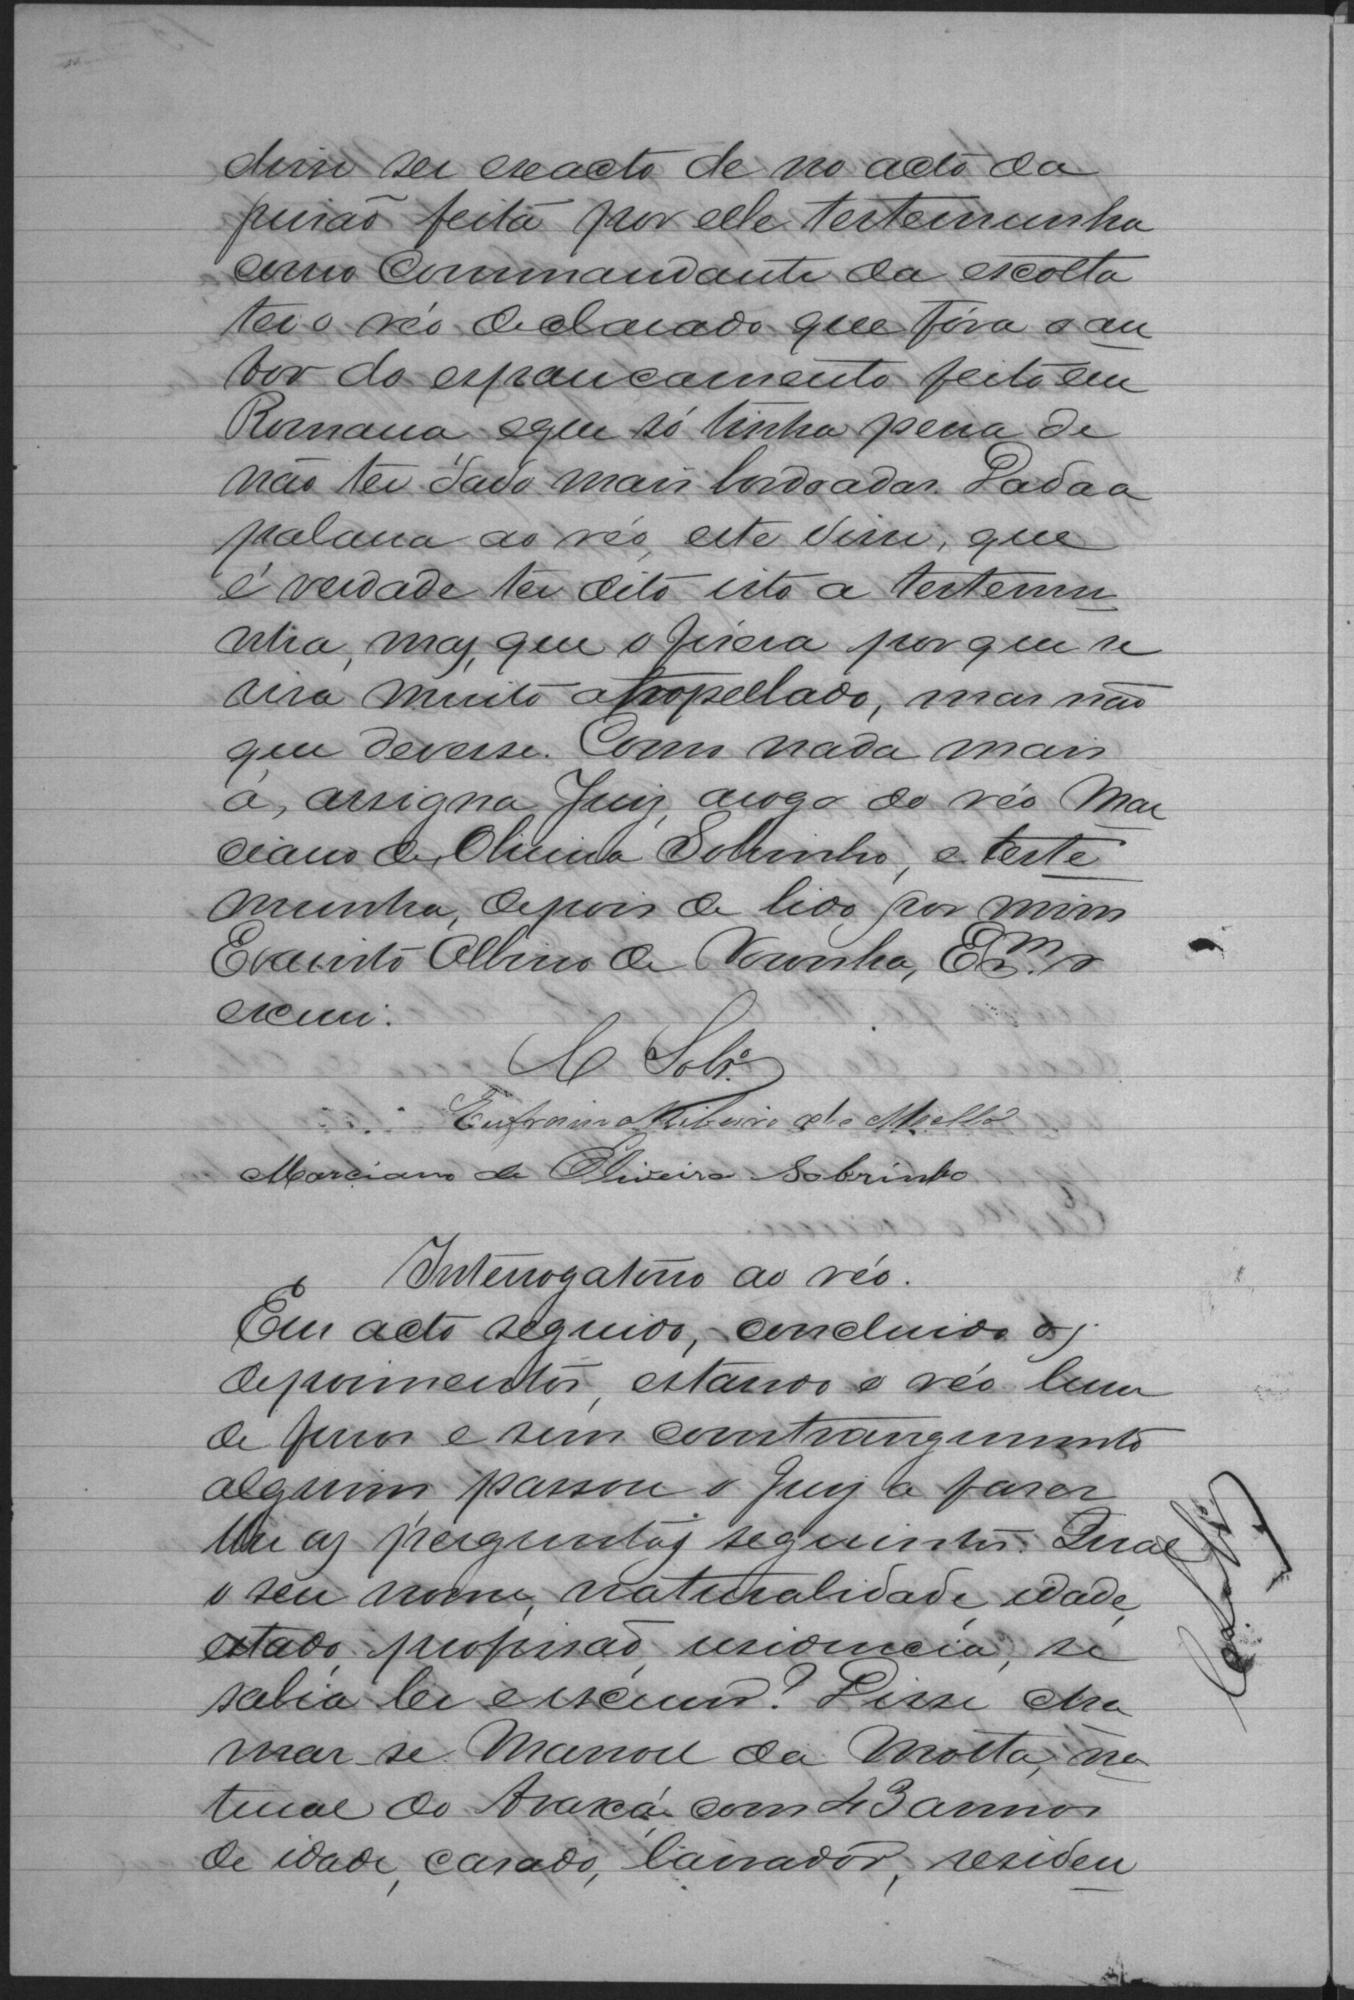 disse ser exacto de no acto da
prisão feita por elle testemunha
como Commandante da escolta
ter o réo declarado que fôra o au
tor do espancamento feito em
Romana e que só tinha pena de
não ter dado mais bordoadas. Dada a
palavra ao réo, este disse, que
é verdade ter dito isto a testemu
nha, mas, que o fisera por que se
vira muito atropellado, mas não
que devesse. Como nada mais
a, assigna Juiz, arogo do réo Mar
ciano de Oliveira Sobrinho, e teste
munha, depois de lido por mim
Evaristo Albino de Noronha, Esm. o
escrevi.
A Sobr.º
Eufrasino Ribeiro de Mello
Marciano de Oliveira Sobrinho
Interrogatorio ao réo.
Em acto seguido, concluido os
depoimentos, estando o réo livre
de ferros e sem constrangimento
algum, passou o Juiz a faser
lhe as perguntas seguintes. Qual
o seu nome, naturalidade, idade,
estado, profissão, residencia, se
sabia ler e escrever? Disse cha
mar-se Manoel da Motta, na
tural do Araxá com 43 annos
de idade, casado, lavrador, residen